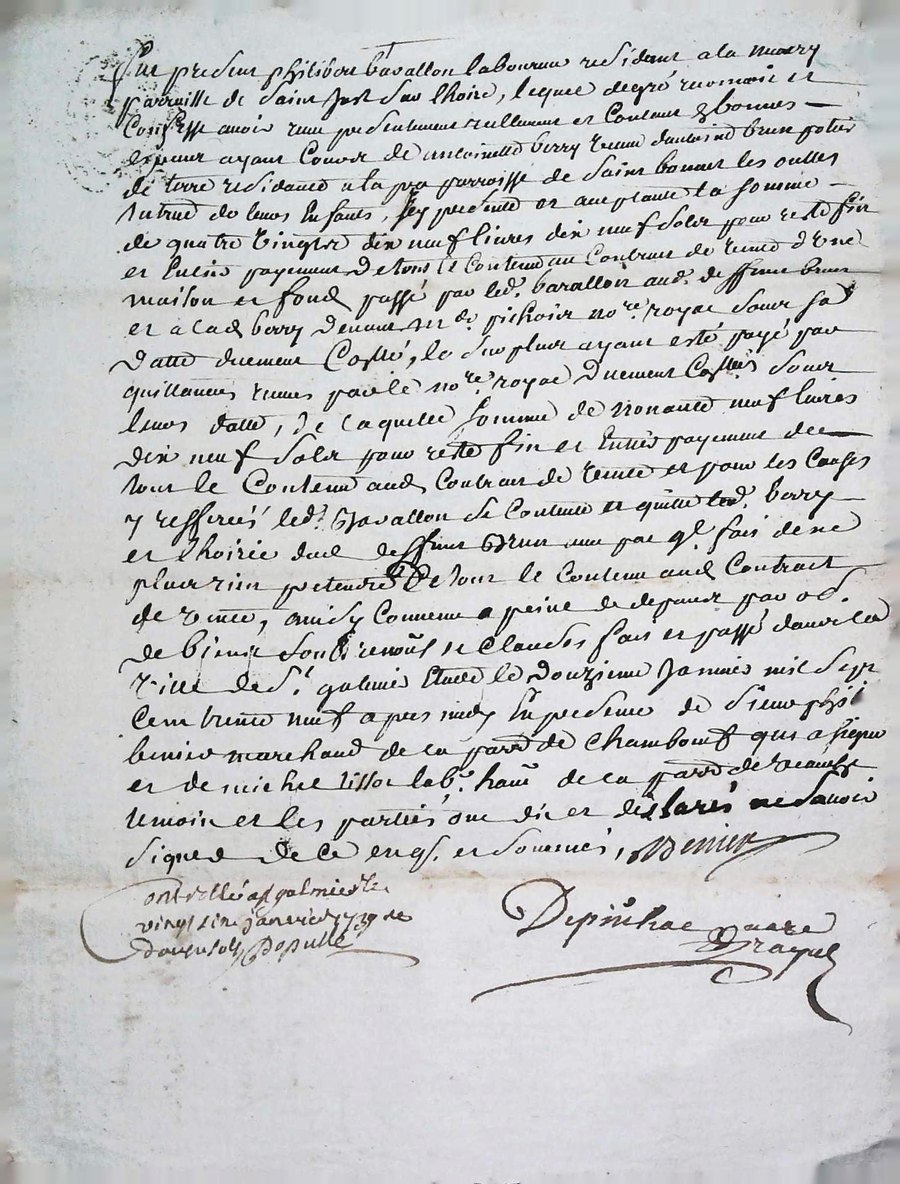 fut present philibert bavallon laboureur residant a la
parroisse de Saint Just sur lhoire, lequel de gré reconnoit et
Confesse avoir receu presentement reellement et Contant &bonnes
especes ayant Cours de antoinette berry veuve dantoine brun potier
de terre residante a la parroisse de Saint bonnet les oulles
tutrice de leurs Enfants, Icy presente et aceptante la Somme
de quatre vingts dix neuf livres dix neuf Sols pour reste fin
et Entier payement De tout le Contenu au Contrat de vente d'une
maison et fond passé par led. bavallon aud. deffunt brun
et a lad berry devant Me pichoir nore. royal Sous sa
Datte duement Collé, le Surplus ayant esté payé par
quittances receues par le nore. royal Duement Collés Sous
leurs datte, De laquelle Somme de Nonante neuf livres
dix neuf Sols pour reste fin et Entier payement de
tout le Contenu aud. Contrat de vente et pour les Causes
y refferés led. Bavallon Se Contente et quitte lad. berry
et lhoirie dud deffunt Brun avec pac q. fait de ne
plus rien pretendre De tout le Contenu aud Contract
de vente, ainsy Convenu a peine de depans par ob.
De biens Soub. renons. et Clauses fait et passé dans la
ville de St. galmier Etude le Douzieme Janvier mil Sept
Cent trente neuf apres midy En presence de Sieur phil
benier marchand de la parr. de Chambeuf qui a signé
et de michel tissot lab. hant. de la parr. de
temoins et les parties ont dit et declarés ne Savoir
Signer de ce enqs. et Sommés, Benier
Controllé a St galmier le
vingt un janvier 1739 re
douze sols Depulle
Depinhac nore
Royal